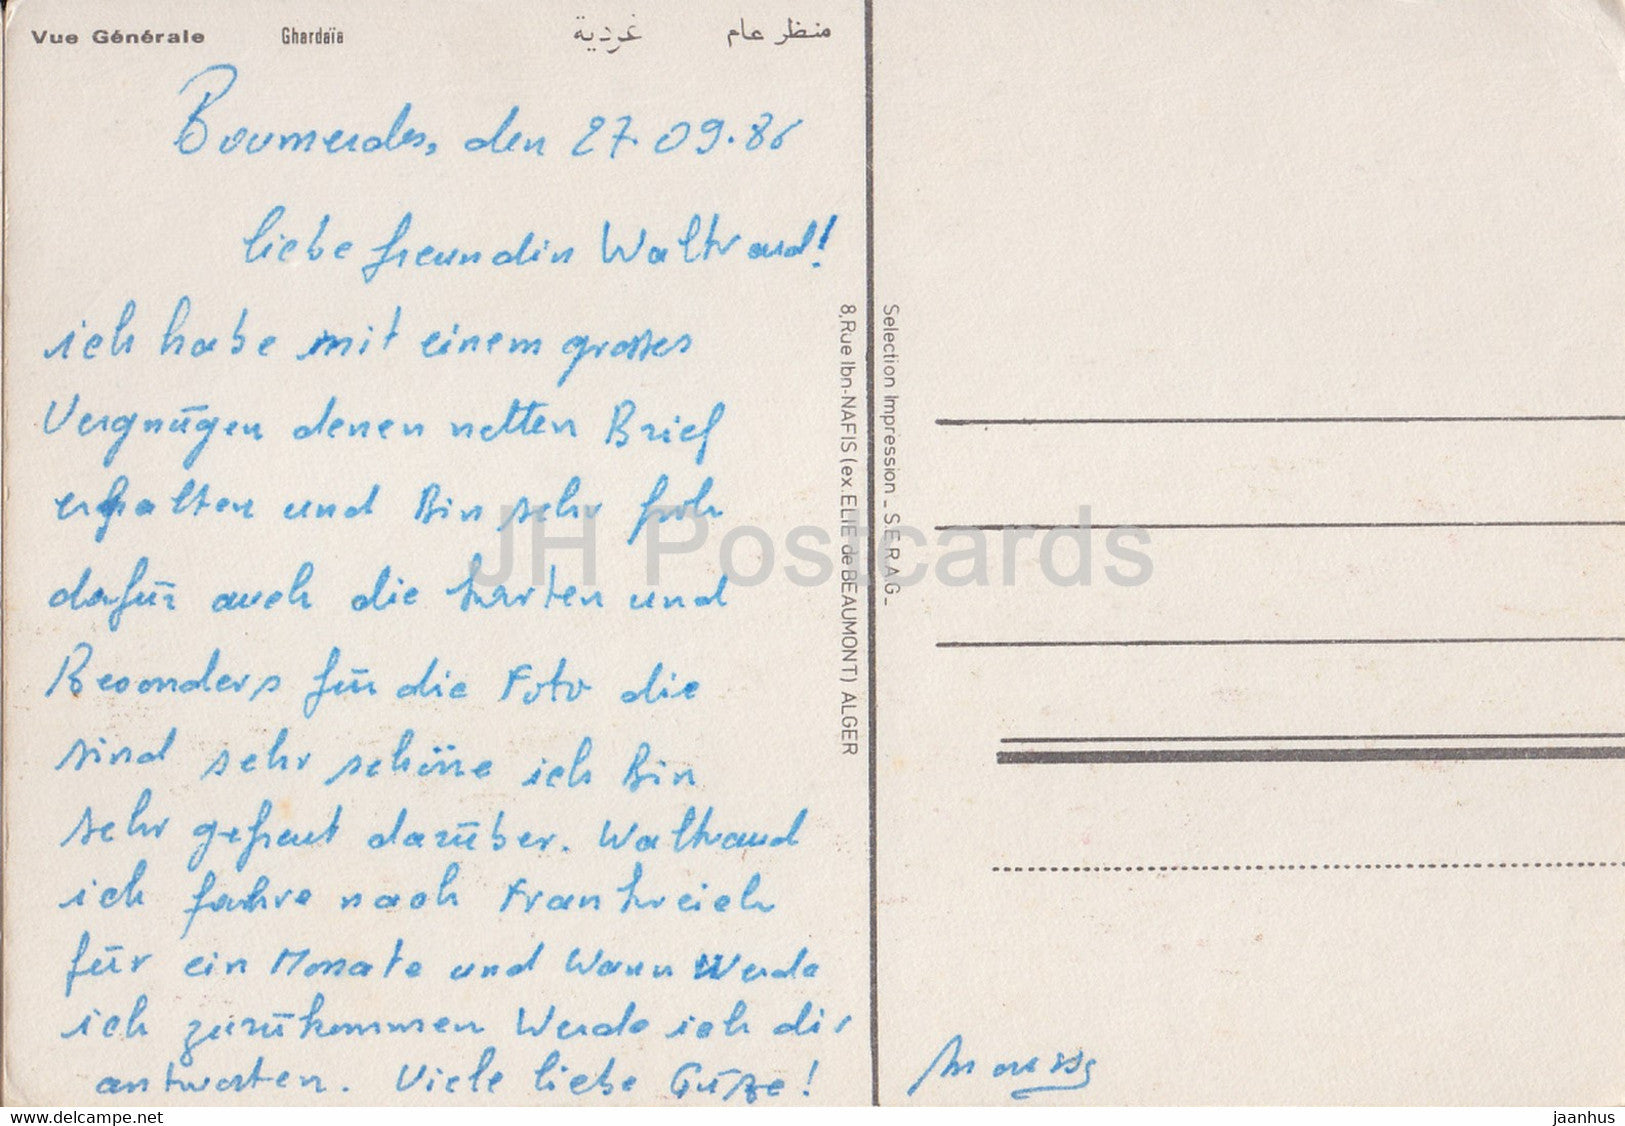 Vue Générale Ghardaïa غرداية منظر عام
Boumerdes, den 27.09.86
liebe freundin Waltraud!
ich habe mit einem grosses
Vergnügen denen netten Brief
erhalten und Bin sehr froh
dafür auch die karten und
Besonders für die Foto die
sind sehr schöne ich Bin
sehr gefreut darüber. Waltraud
ich fahre nach Frankreich
für ein Monate und Wann Werde
ich zurükommen Werde ich dir
antworten. Viele liebe Grüße!
8,Rue Ibn-NAFIS (ex.ELIE de BEAUMONT) ALGER
Selection Impression _ S.E.R.A.G_
JH Postcards
www.delcampe.net
jaanhus